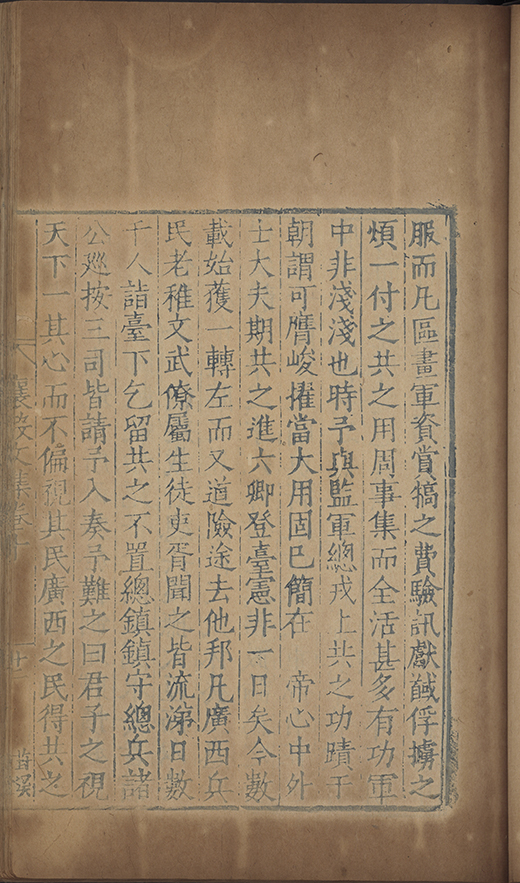 服而凡區畫軍資賞犒之費驗訊獻馘俘擄之
煩一付之共之用周事集而全活甚多有功軍
中非淺淺也時予與監軍總戎上共之功蹟于
朝謂可膺峻擢當大用固已簡在　帝心中外
士大夫期共之進六卿登臺憲非一日矣今數
載始獲一轉左而又道險途去他邦凡廣西兵
民老稚文武僚屬生徒吏胥聞之皆流涕日數
千人詣臺下乞留共之不置總鎮鎮守總兵諸
公廵按三司皆請予入奏予難之曰君子之視
天下一其心而不偏視其民廣西之民得共之
襄毅文集卷十